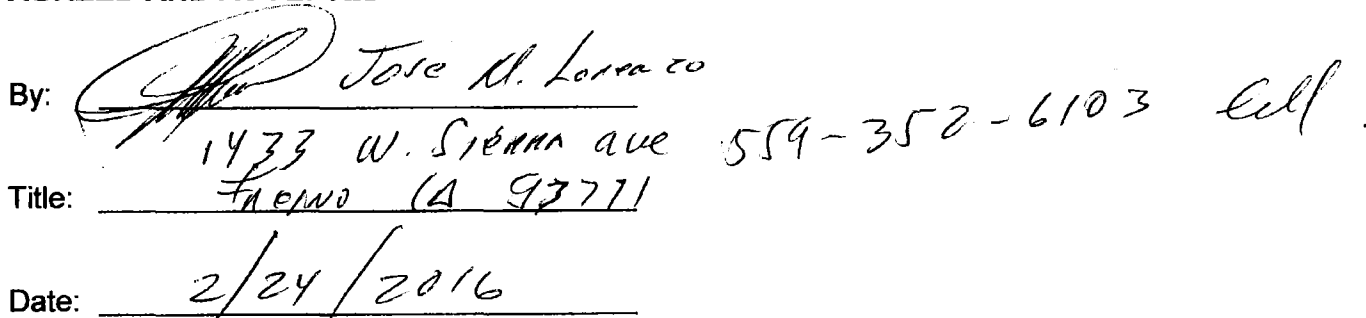 By: Jose M. Lorenzo
1433 W. Sierra ave 559-352-6103 Cell.
Title: Fresno CA 93711
Date: 2/24/2016